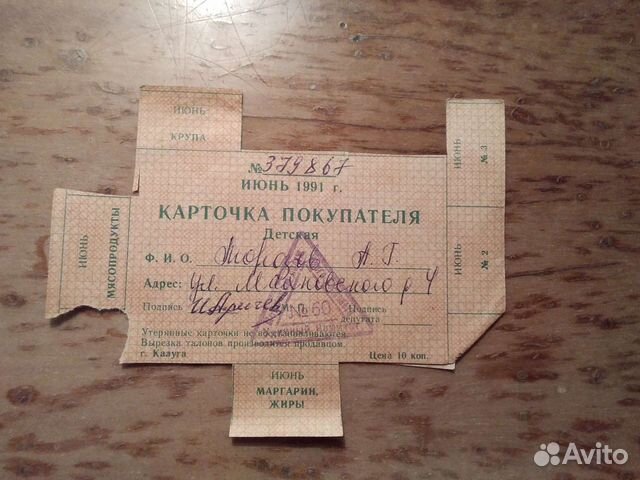 ИЮНЬ
КРУПА
№ 379867
ИЮНЬ 1991 г.
КАРТОЧКА ПОКУПАТЕЛЯ
Детская
Ф. И. О. А. Г.
Адрес: ул. 4
Подпись М. П. Подпись
депутата
№ 60
Утерянные карточки не восстанавливаются.
Вырезка талонов производится продавцом.
г. Калуга Цена 10 коп.
ИЮНЬ
МЯСОПРОДУКТЫ
ИЮНЬ
МАРГАРИН,
ЖИРЫ
ИЮНЬ
№ 3
ИЮНЬ
№ 2
Avito